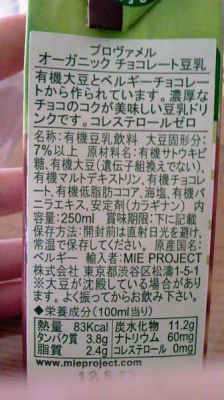 プロヴァメル
オーガニック チョコレート豆乳
有機大豆とベルギーチョコレー
トから作られています。濃厚な
チョコのコクが美味しい豆乳ドリ
ンクです。コレステロールゼロ
名称：有機豆乳飲料 大豆固形分：
7%以上 原材料名：有機サトウキビ
糖、有機大豆（遺伝子組換えでない）、
有機マルトデキストリン、有機チョコレ
ート、有機低脂肪ココア、海塩、有機バ
ニラエキス、安定剤（カラギナン） 内
容量：250ml 賞味期限：下に記載
保存方法：開封前は直射日光を避け、
常温で保存してください。原産国名：
ベルギー 輸入者名：MIE PROJECT
株式会社 東京都渋谷区松濤1-5-1
※大豆が沈殿している場合があり
ます。よく振ってからお飲み下さい。
◆栄養成分（100ml当り）
熱量 83Kcal 炭水化物 11.2g
タンパク質 3.8g ナトリウム 60mg
脂質 2.4g コレステロール 0mg
www.mieproject.com